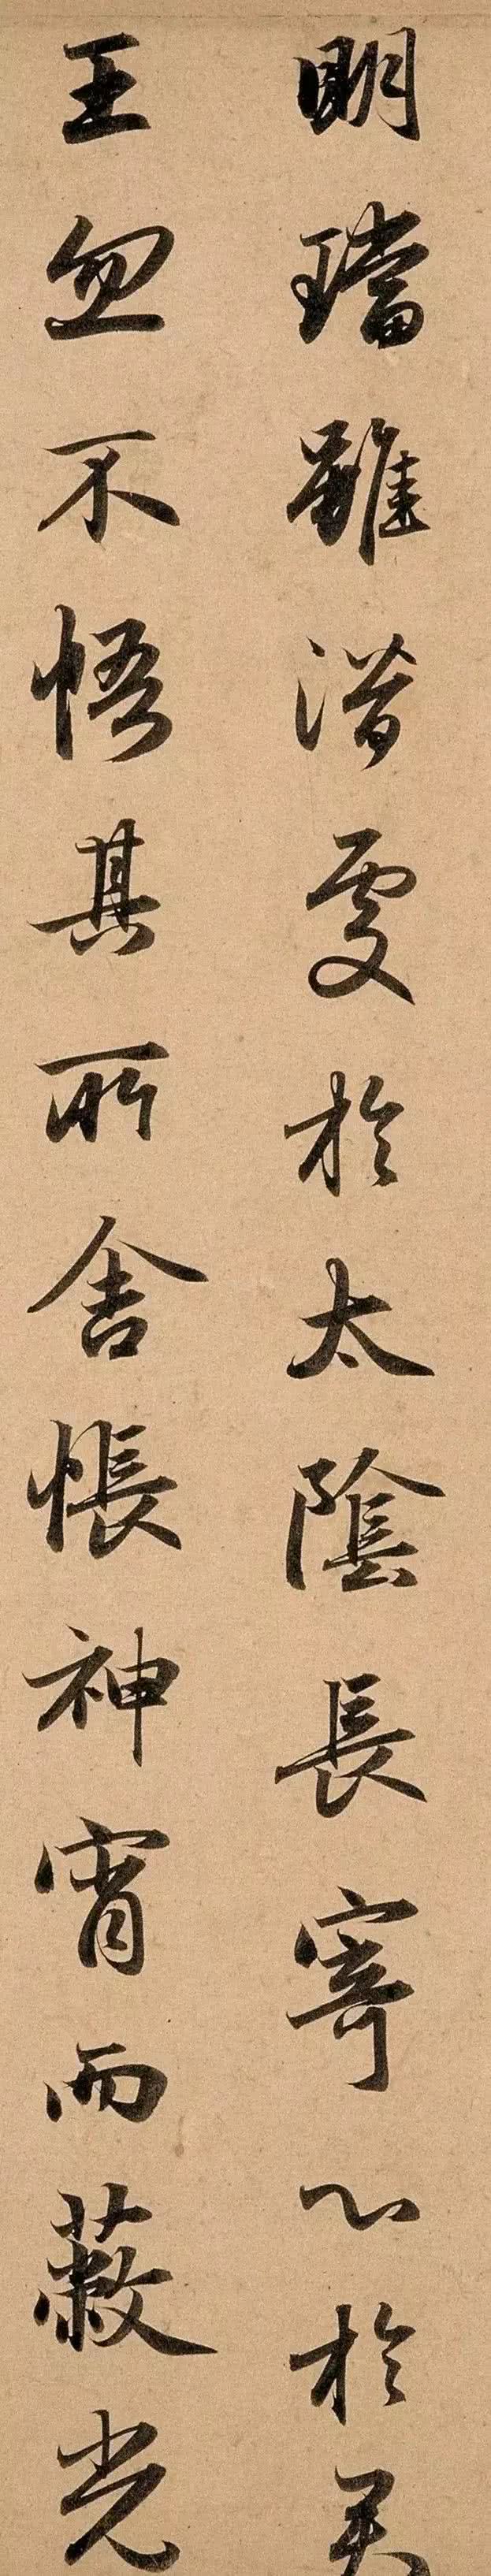 明璫雖潛處於太陰長寄心於君
王忽不悟其所舍悵神宵而蔽光